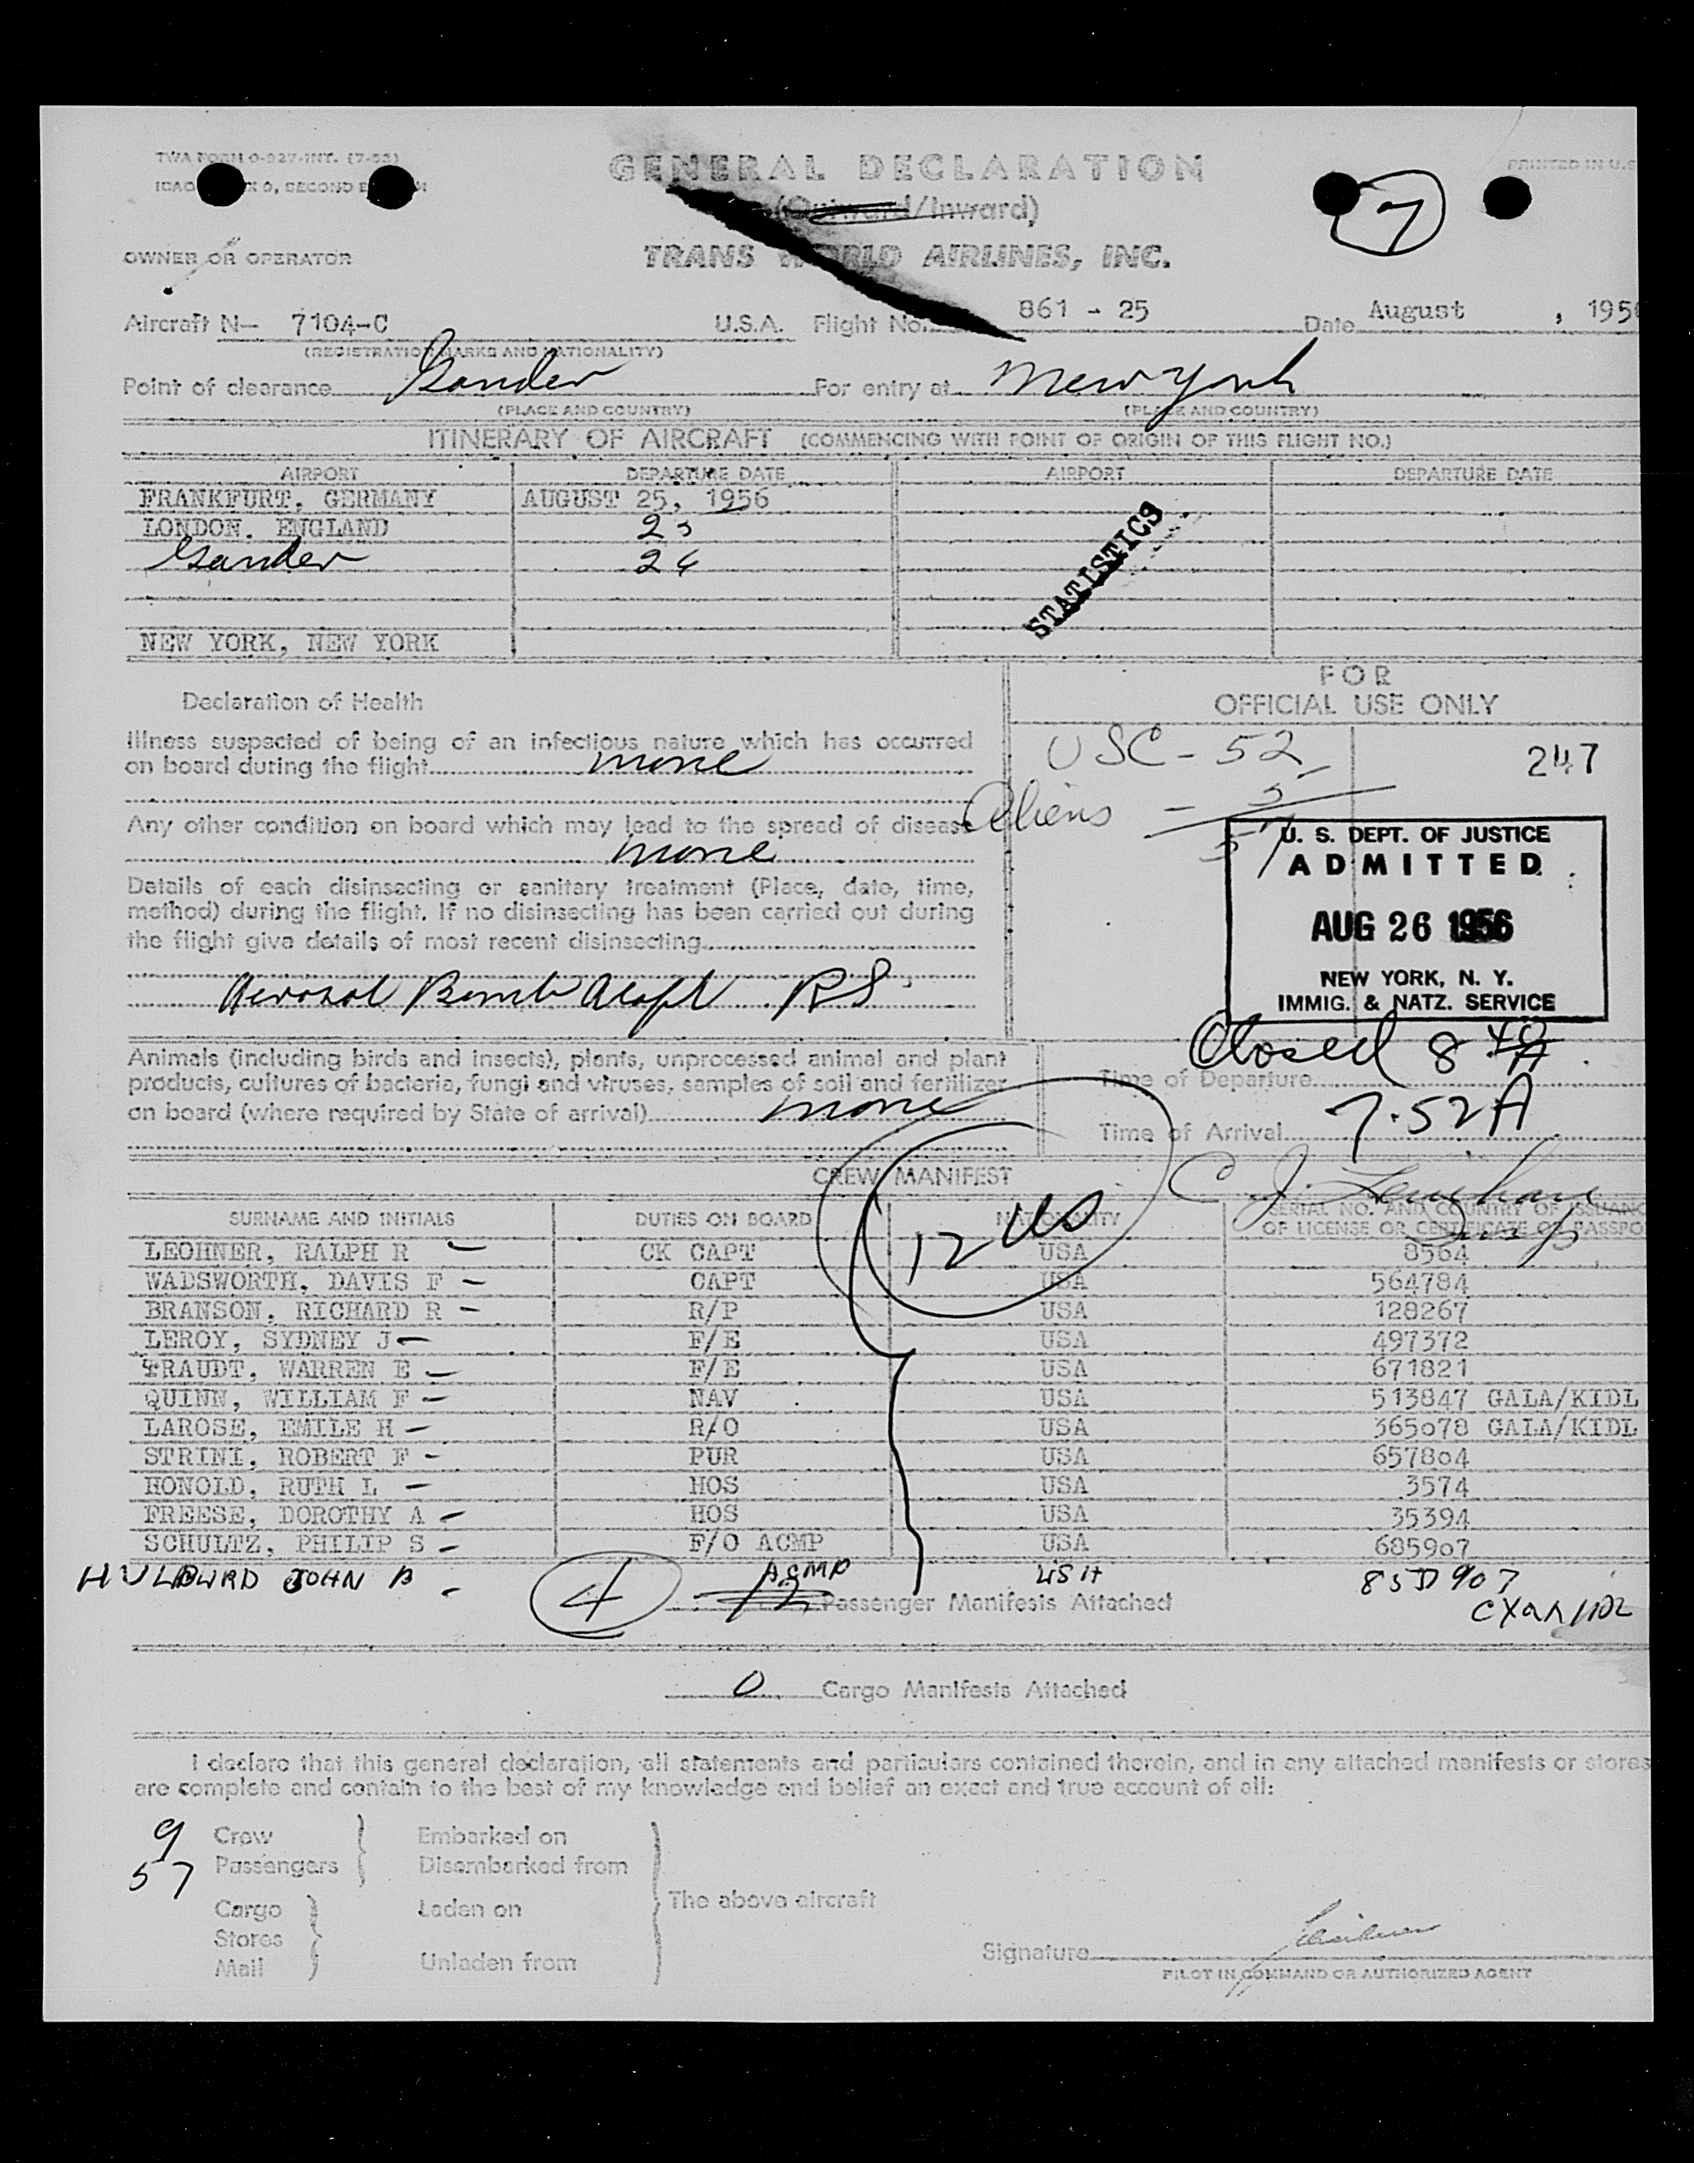 TWA FORM O-927-INT. (7-55)
PRINTED IN U.S
ICAO 9, SECOND
GENERAL DECLARATION
(Outward/Inward)
7
TRANS WORLD AIRLINES, INC.
OWNER OR OPERATOR
Aircraft N- 7104-C U.S.A. Flight No. 861 - 25 Date August , 195
(REGISTRATION MARKS AND NATIONALITY)
Point of clearance Gander For entry at New York
(PLACE AND COUNTRY) (PLACE AND COUNTRY)
ITINERARY OF AIRCRAFT (COMMENCING WITH POINT OF ORIGIN OF THIS FLIGHT NO.)
AIRPORT DEPARTURE DATE AIRPORT DEPARTURE DATE
FRANKFURT, GERMANY AUGUST 25, 1956
LONDON. ENGLAND 25
Gander 26
STATISTICS
NEW YORK, NEW YORK
FOR
OFFICIAL USE ONLY
Declaration of Health
Illness suspected of being of an infectious nature which has occurred
on board during the flight none
USC - 52
247
Aliens - 5
57
Any other condition on board which may lead to the spread of disease
none
U. S. DEPT. OF JUSTICE
ADMITTED
AUG 26 1956
NEW YORK, N. Y.
IMMIG. & NATZ. SERVICE
Details of each disinsecting or sanitary treatment (Place, date, time,
method) during the flight. If no disinsecting has been carried out during
the flight give details of most recent disinsecting
Aerosol Bomb RS
Closed 8 40 A
Animals (including birds and insects), plants, unprocessed animal and plant
products, cultures of bacteria, fungi and viruses, samples of soil and fertilizer
on board (where required by State of arrival) none
Time of Departure
Time of Arrival 7.52A
C. J.
CREW MANIFEST
12 US
SURNAME AND INITIALS DUTIES ON BOARD NATIONALITY SERIAL NO. AND COUNTRY OF ISSUANC
OF LICENSE OR CERTIFICATE OR PASSPO
LEOHNER, RALPH R CK CAPT USA 8564
WADSWORTH, DAVIS F CAPT USA 564784
BRANSON, RICHARD R R/P USA 128267
LEROY, SYDNEY J F/E USA 497372
TRAUDT, WARREN E F/E USA 671821
QUINN, WILLIAM F NAV USA 513847 GALA/KIDL
LAROSE, EMILE H R/O USA 365078 GALA/KIDL
STRINI, ROBERT F PUR USA 657804
HONOLD, RUTH L HOS USA 3574
FREESE, DOROTHY A HOS USA 35394
SCHULTZ, PHILIP S F/O ACMP USA 685907
HULBURD JOHN B ACMP USA 85D907
4 Passenger Manifests Attached
0 Cargo Manifests Attached
I declare that this general declaration, all statements and particulars contained therein, and in any attached manifests or stores
are complete and contain to the best of my knowledge and belief an exact and true account of all:
9 Crew Embarked on
57 Passengers Disembarked from
The above aircraft
Cargo Laden on
Stores
Mail Unladen from
Signature
PILOT IN COMMAND OR AUTHORIZED AGENT